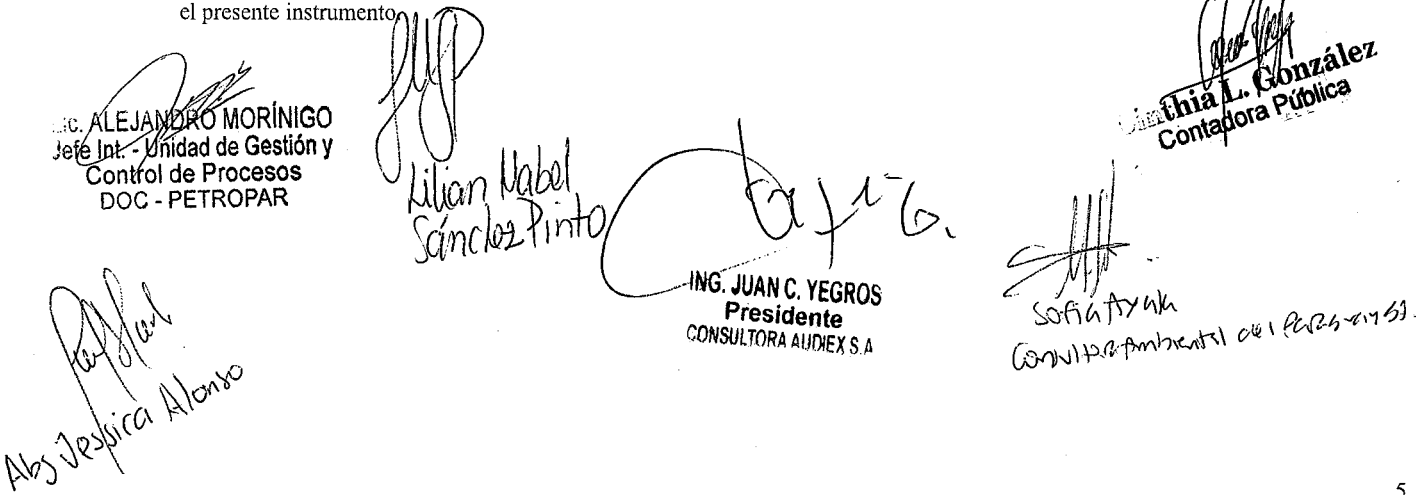 el presente instrumento
Lic. ALEJANDRO MORÍNIGO
Jefe Int. - Unidad de Gestión y
Control de Procesos
DOC - PETROPAR
Lilian Mabel
Sánchez Pinto
Cinthia L. González
Contadora Pública
ING. JUAN C. YEGROS
Presidente
CONSULTORA AUDIEX S.A
Sofia Ayala
Consultora Ambiental del Paraguay
Abg Jessica Alonso
5